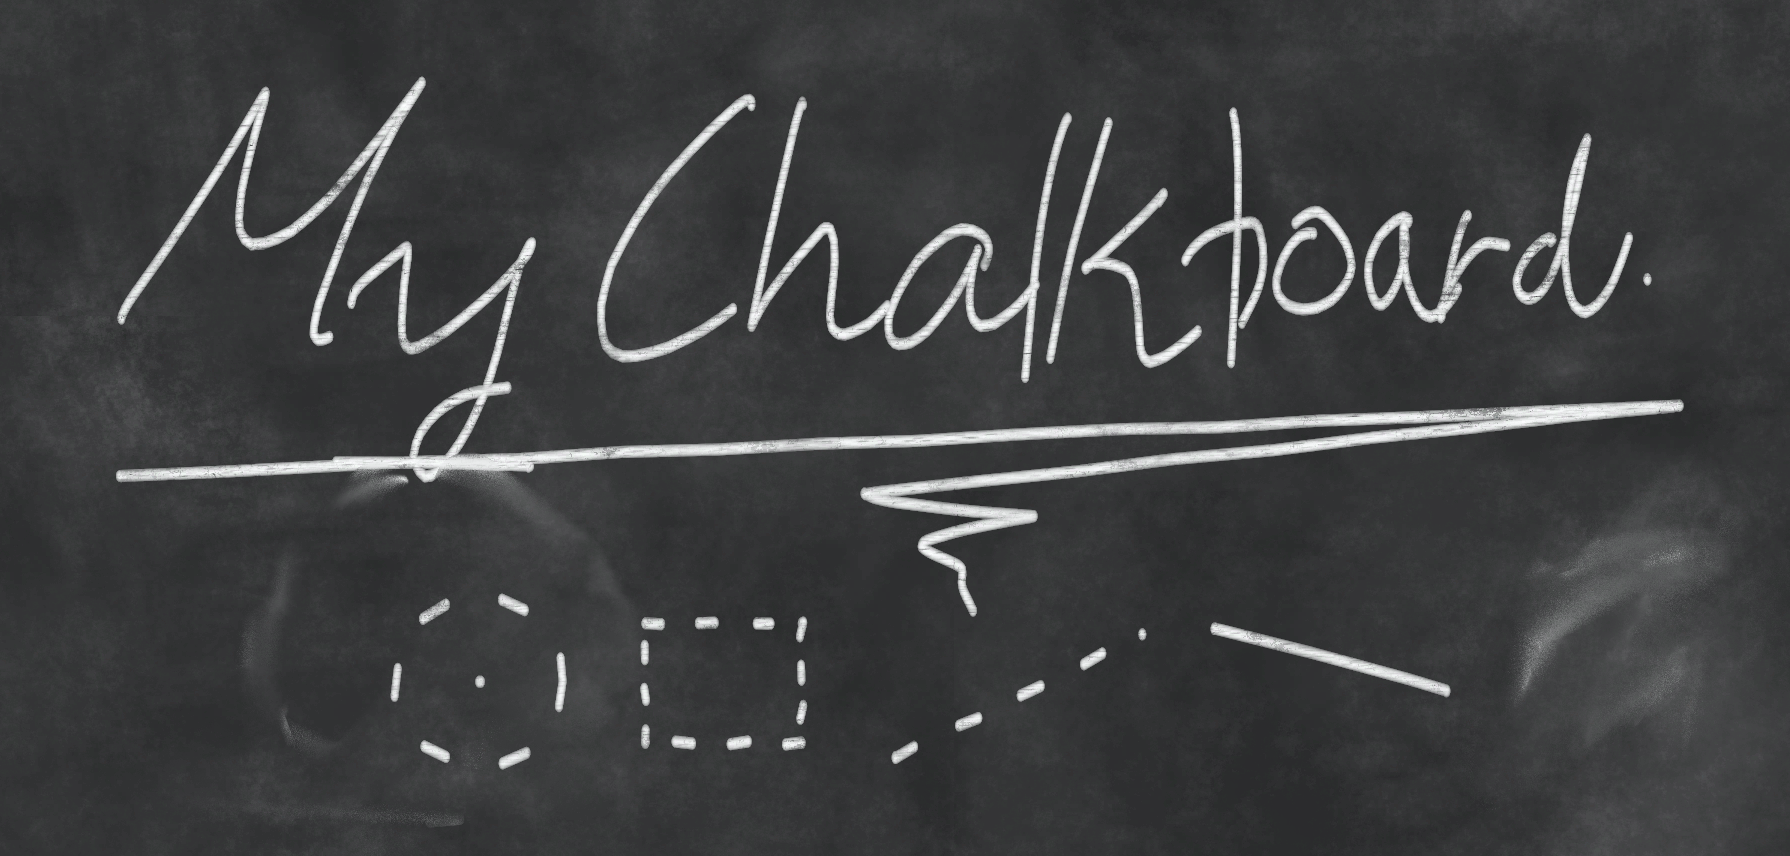 My Chalkboard.